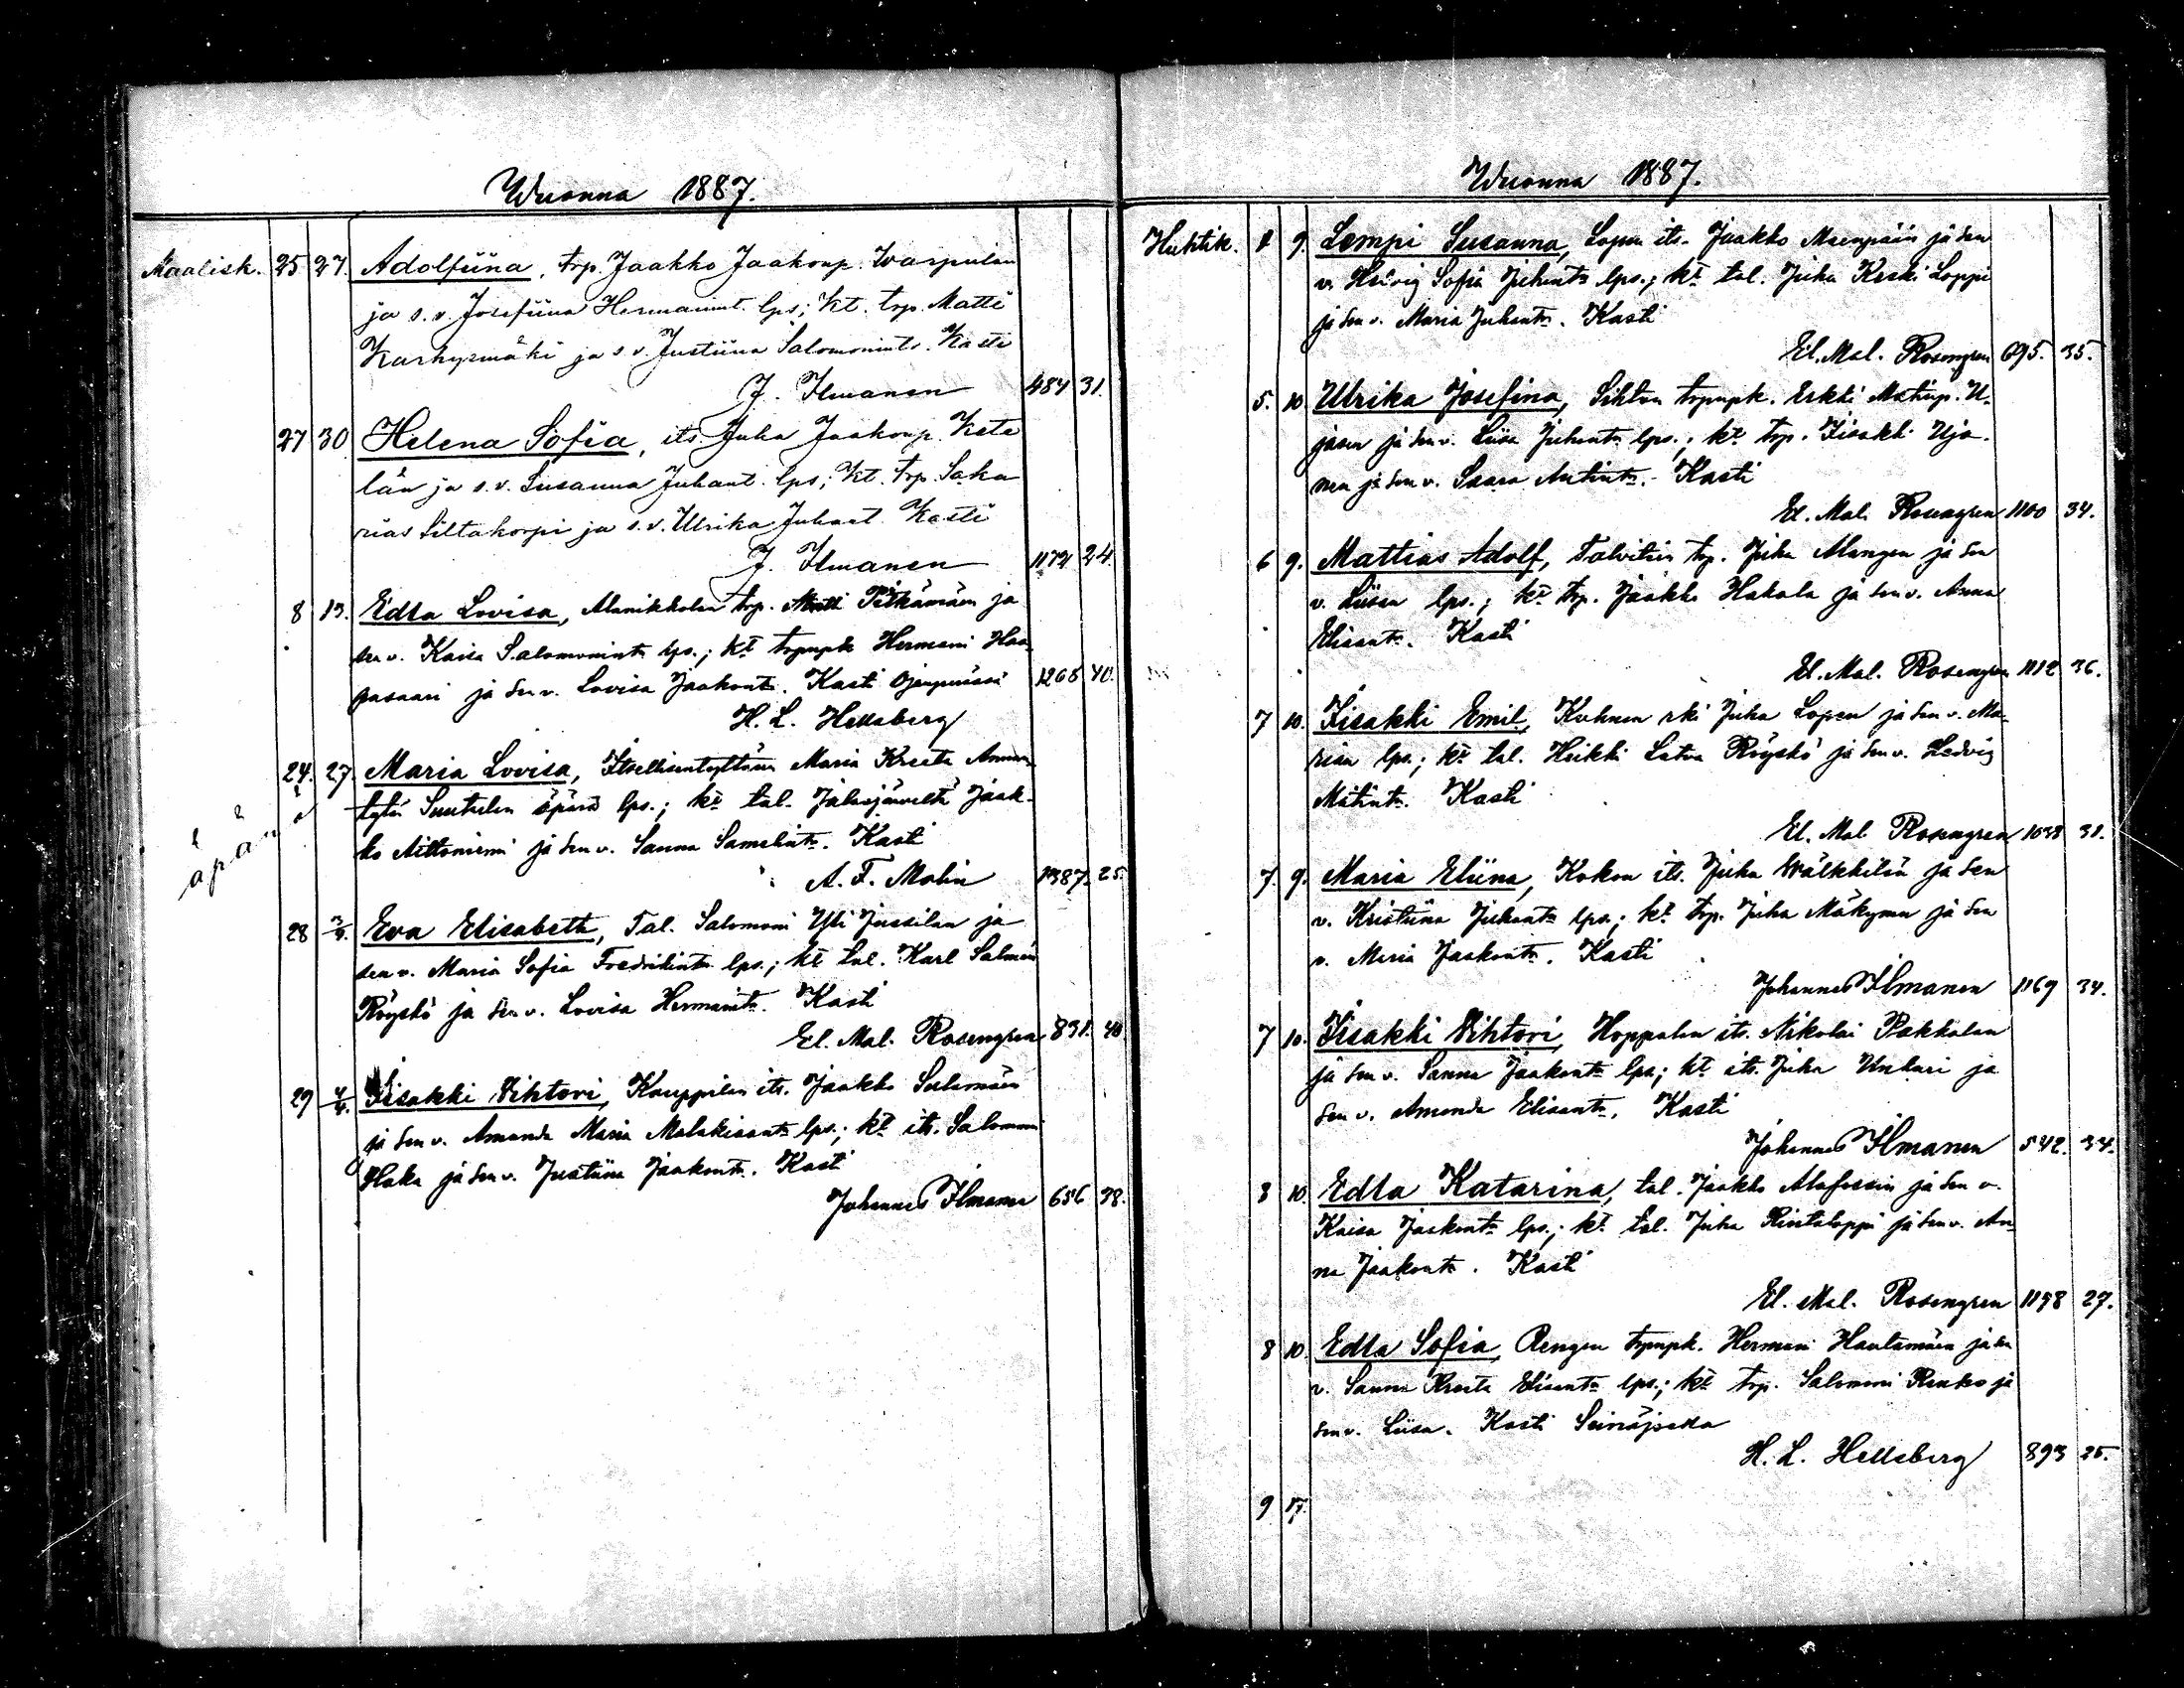 Wuonna 1887.
Maalisk. 25 27. Adolfiina, trp. Jaakko Jaakonp. Warpulan
ja s.v. Josefiina Hermannint. lps; kt. trp. Matti
Karhyrmäki ja s.v. Justiina Salomonint. Kasti
J. Ilmanen 484 31.
27 30 Helena Sofia, its. Juha Jaakonp. Kete
län ja s.v. Susanna Juhant. lps; kt. trp. Saka
rias Siltakorpi ja s.v. Ulrika Juhant. Kasti
J. Ilmanen 1172 24.
8 13. Edla Lovisa, trp. Matti Pitkämäen ja
sen v. Kaisa Salomonint. lps.; kt. trpnpk Hermani Haa-
pasaari ja sen v. Lovisa Jaakont. Kasti
1265 40.
H. L. Hellsberg
24. 27. Maria Lovisa, Itsellisentyttären Maria Kreeta
äpärä lps.; kt. tal. Jalasjärveltä Jaak-
ko Aittoniemi ja sen v. Sanna Samelint. Kasti
äpärä
A. F. Molin 1387. 25.
28 3/4. Eva Elisabeth, Tal. Salomoni Yli Jussilan ja
sen v. Maria Sofia Fredrikint. lps.; kt. tal. Karl
Röyskö ja sen v. Lovisa Hermanint. Kasti
El. Mal. Rosengren 831. 40.
29 4/4. Iisakki Vihtori, Kauppilan its. Jaakko Salomäen
ja sen v. Amanda Maria Malakiaant. lps.; kt. its. Salomoni
Haka ja sen v. Justiina Jaakont. Kasti
Johannes Ilmanen 656 38.
Wuonna 1887.
Huhtik. 8 9. Lempi Susanna, Lopen its. Jaakko Maenpään ja sen
v. Hedvig Sofia Juhant. lps.; kt. tal. Juha Keski Loppi
ja sen v. Maria Juhant. Kasti
El. Mal. Rosengren 695. 35.
5. 10. Ulrika Josefina, Sihton trpnpk. Erkki Matinp. U-
jasen ja sen v. Liisa Juhant. lps.; kt. trp. Iisakki Uja-
nen ja sen v. Saara Antint. Kasti
El. Mal. Rosengren 1100 34.
6 9. Mattias Adolf, Talvitien trp. Juha Mangen ja sen
v. Liisan lps.; kt. trp. Jaakko Hakala ja sen v. Anna
Elisant. Kasti
El. Mal. Rosengren 1112 36.
7 10. Iisakki Emil, Kuhnen rki Juha Lopen ja sen v. Ma-
rian lps.; kt. tal. Heikki Latva Röyskö ja sen v. Hedvig
Matint. Kasti
El. Mal. Rosengren 1038 31.
7. 9. Maria Eliina, Kokon its. Juha Wälkkilän ja sen
v. Kristiina Juhant. lps.; kt. trp. Juha Mäkynen ja sen
v. Maria Jaakont. Kasti
Johannes Ilmanen 1169 34.
7 10. Iisakki Vihtori, Hoppalan its. Nikolai Pakkalan
ja sen v. Sanna Jaakont. lps.; kt. its. Juha Unkuri ja
sen v. Amanda Elisant. Kasti
Johannes Ilmanen 542. 34.
8 10. Edla Katarina, tal. Jaakko Alafossin ja sen v.
Kaisa Jaakont. lps.; kt. tal. Juha Rintaloppi ja sen v. An-
na Jaakont. Kasti
El. Mal. Rosengren 1198 27.
8 10. Edla Sofia, Rengon trpnpk. Hermani Hautamäen ja sen
v. Sanna Kreeta Elisant. lps.; kt. trp. Salomoni Renko ja
sen v. Liisa. Kasti Seinäjoella
H. L. Hellsberg 893 25.
9 17.